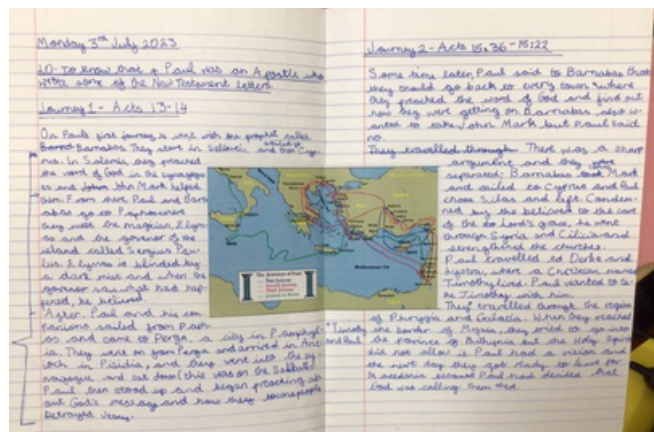 Monday 3rd July 2023
LO- To know that Paul was an Apostle who
wrote some of the New Testament letters
Journey 1 - Acts 13-14
On Pauls first journey he went with the prophet called
Barnabas. They store in Seleucia and then Cyp-
rus. In Salamis, they preached
the word of God in the synagogu-
es and John Mark helped
them. From there Paul and Barn-
abas go to Paphos where
they meet the magician, Elym-
as and the governor of the
island called Sergius Pau-
lus. Elymas is blinded by
a dark mist and when the
governor saw what had hap-
pened, he believed.
After, Paul and his com-
panions sailed from Paph-
os and came to Perga, a city in Pamphyl-
ia. They went on from Perga and arrived in Ant-
ioch in Pisidia, and they went into the sy-
nagogue and sat down (this was on the Sabbath)
Paul then stood up and began preaching ab-
out God's message and how these people
betrayed Jesus.
Journey 2 - Acts 15,36-18:22
Some time later, Paul said to Barnabas that
they should go back to every town where
they preached the word of God and find out
how they were getting on. Barnabas also w-
anted to take John Mark but Paul said
no.
They travelled through There was a sharp
argument and they were
separated: Barnabas took Mark
and sailed to Cyprus and Paul
chose Silas and left. Commen-
ded by the believers to the care
of the Lord's grace, he went
through Syria and Cilicia and
strengthened the churches.
Paul travelled to Derbe and
Lystra, where a Christian named
Timothy lived. Paul wanted to ta-
ke Timothy with him.
They travelled through the region
*Timothy
and Paul
of Phrygia and Galatia. When they reached
the border of Mysia, they tried to go into
the province of Bithynia but the Holy Spirit
did not allow it. Paul had a vision and
the next day they got ready to leave for
Macedonia because Paul had decided that
God was calling them there.
The Journeys of Paul
First Journey
Second Journey
Third Journey
Journey to Rome
Mediterranean Sea